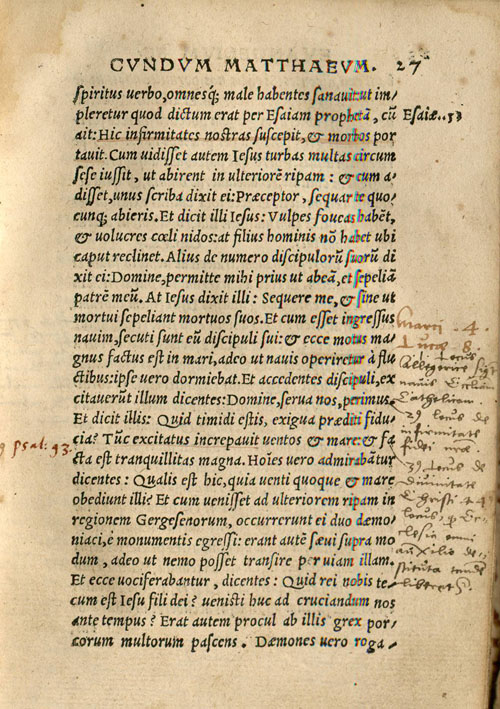 CVNDVM MATTHAEVM. 27
spiritus uerbo, omnesq; male habentes sanauit: ut im/
pleretur quod dictum erat per Esaiam prophetã, cũ
Esaiæ.. 53
ait: Hic infirmitates nostras suscepit, & morbos por
tauit. Cum uidisset autem Iesus turbas multas circum
sese iussit, ut abirent in ulteriorẽ ripam : & cum a/
disset, unus scriba dixit ei: Præceptor, sequar te quo/
cunq; abieris. Et dicit illi Iesus: Vulpes foueas habẽt,
& uolucres cœli nidos: at filius hominis nõ habet ubi
caput reclinet. Alius de numero discipulorũ suorũ di
xit ei: Domine, permitte mihi prius ut abeã, et sepeliã
patrẽ meũ. At Iesus dixit illi : Sequere me, & sine ut
mortui sepeliant mortuos suos. Et cum esset ingressus
nauim, secuti sunt eũ discipuli sui: & ecce motus ma/
gnus factus est in mari, adeo ut nauis operiretur à flu
ctibus: ipse uero dormiebat. Et accedentes discipuli, ex
citauerũt illum dicentes: Domine, serua nos, perimus.
Et dicit illis: Quid timidi estis, exigua præditi fidu/
cia? Tũc excitatus increpauit uentos & mare: & fa/
cta est tranquillitas magna. Hoĩes uero admirabãtur
dicentes : Qualis est hic, quia uenti quoque & mare
obediunt illi? Et cum uenisset ad ulteriorem ripam in
regionem Gergesenorum, occurrerunt ei duo dæmo/
niaci, e monumentis egressi: erant autẽ sæui supra mo
dum , adeo ut nemo posset transire per uiam illam.
Et ecce uociferabantur , dicentes : Quid rei nobis te/
cum est Iesu fili dei ? uenisti huc ad cruciandum nos
ante tempus ? Erat autem procul ab illis grex por/
corum multorum pascens . Dæmones uero roga/
psal: 93.
Marci . 4.
Lucæ . 8.
Locus
Allegoric
nauis
Catholicam
locus de
infirmitate
fidei
Locus de
diuinitate
Christi
locus,
auxilio de
stituta